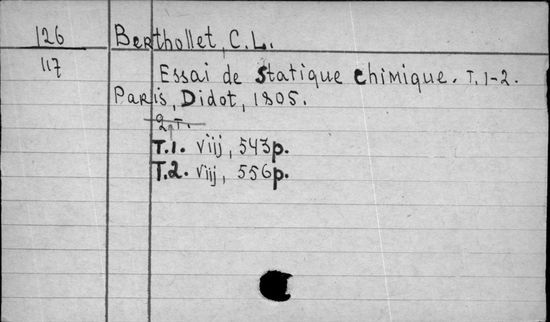 126 Berthollet, C.L.
117 Essai de Statique chimique. T. 1-2.
Paris, Didot, 1805.
2 T.
T.1. viij, 543p.
T.2. viij, 556p.